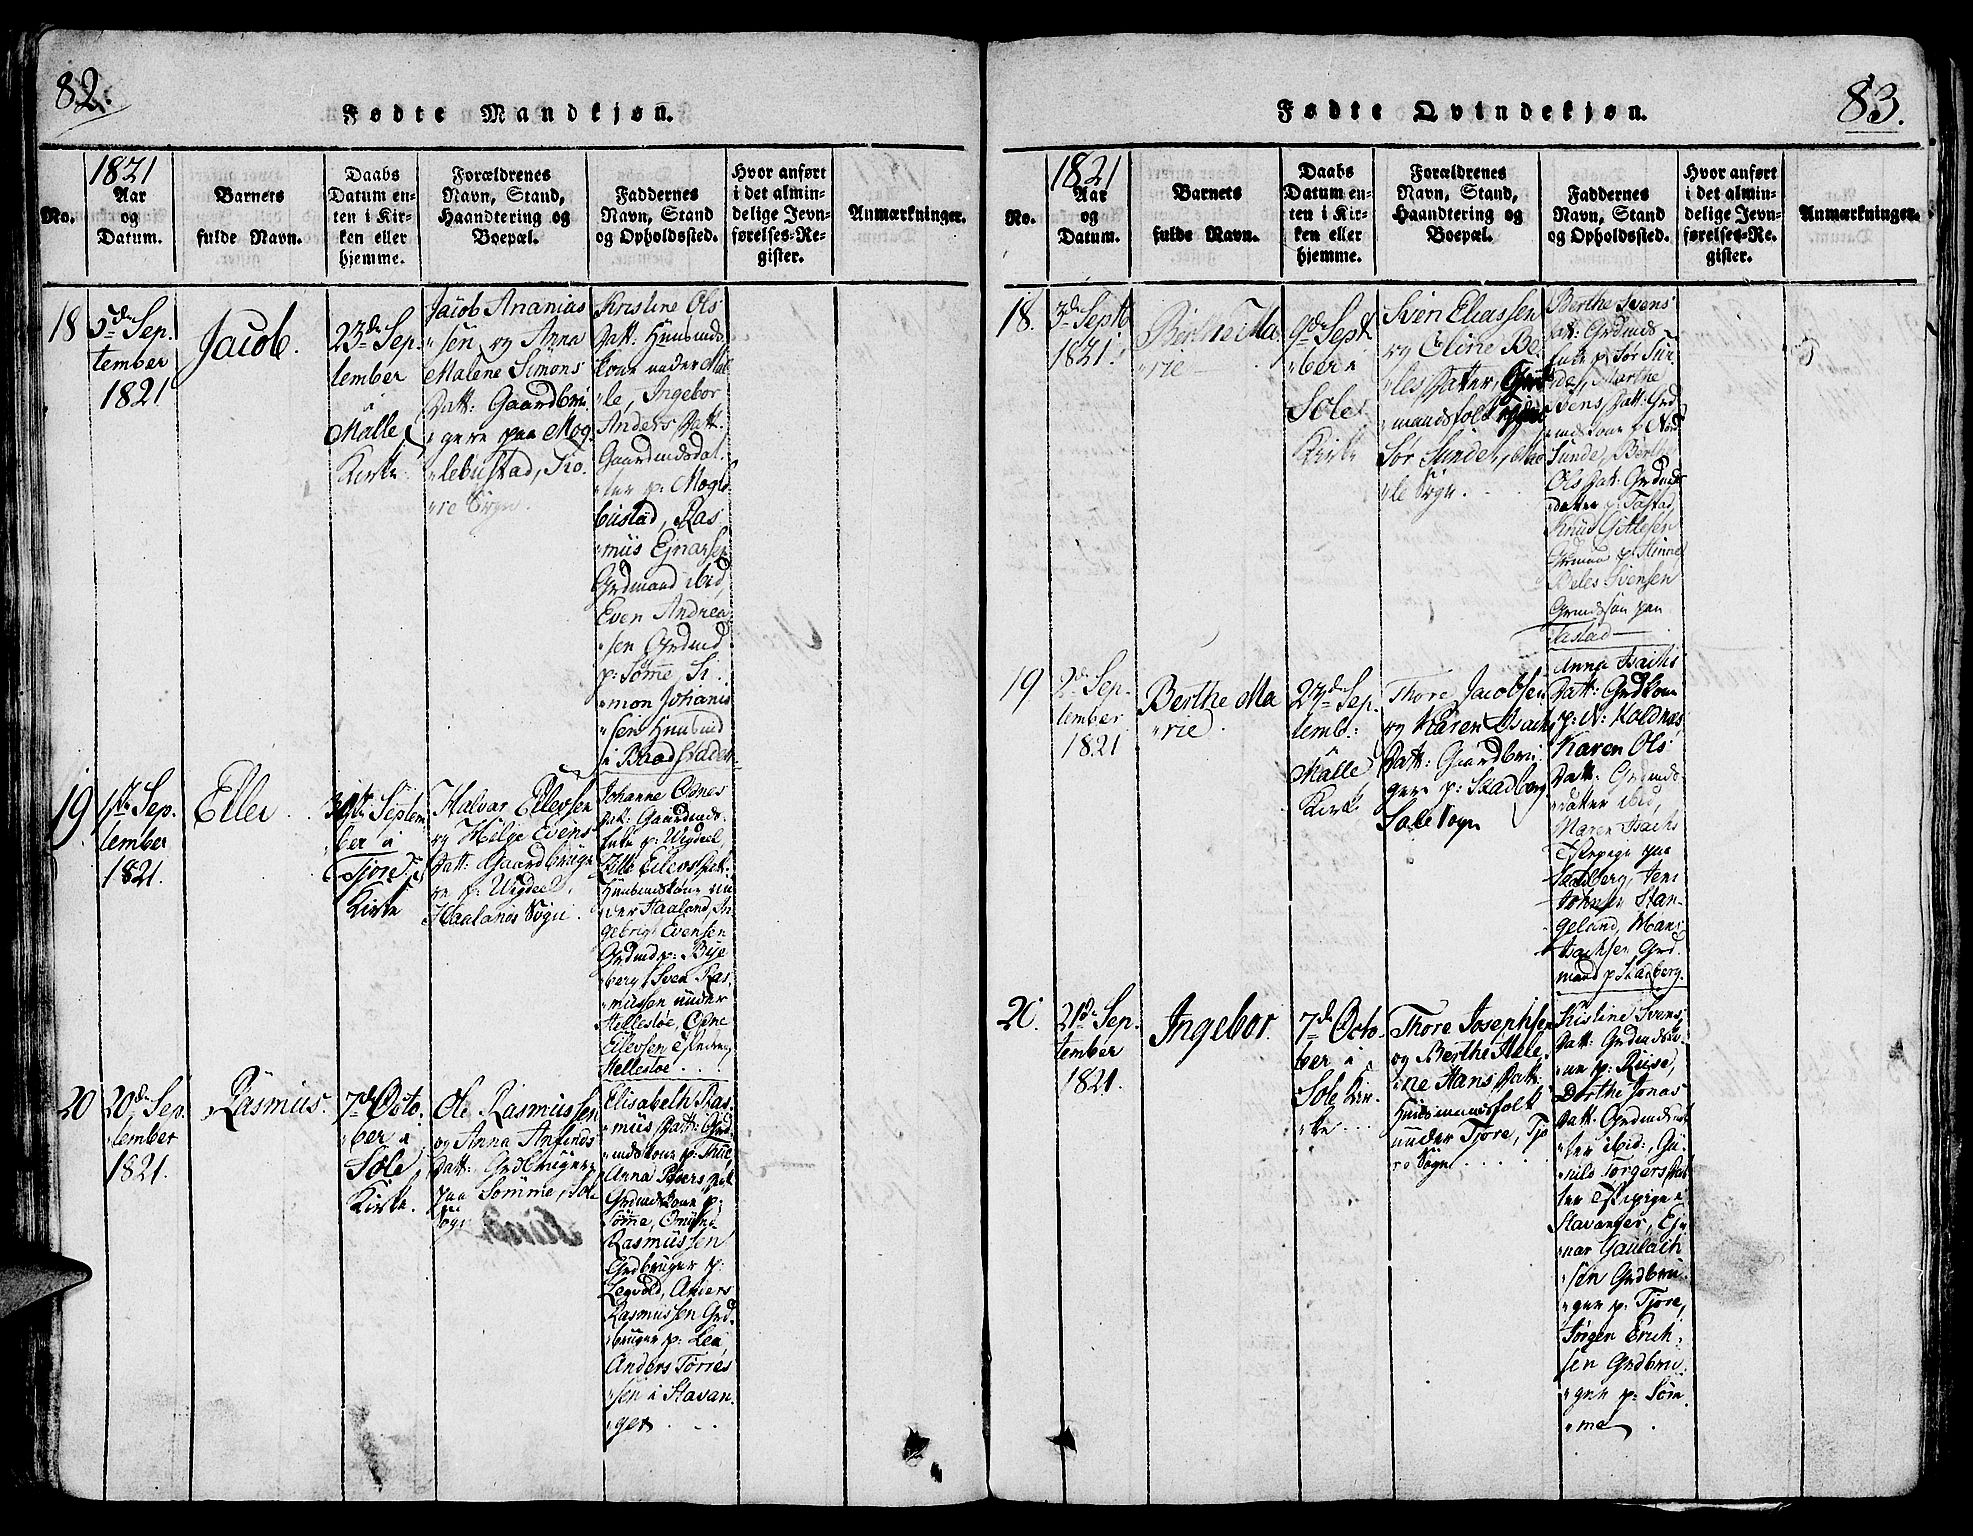 82.
Fødte Mandkjøn.
No.
1821
Aar
og
Datum.
Barnets
fulde Navn.
Daabs
Datum en-
ten i Kir-
ken eller
hjemme.
Forældrenes
Navn, Stand,
Haandtering og
Boepæl.
Faddernes
Navn, Stand
og Opholdssted.
Hvor anført
i det almin-
delige Jevn-
førelses-Re-
gister.
Anmærkninger.
18
5te Sep.
tember
1821
Jacob.
23de Sep.
tember
i
Malle
Kirke
Jacob Ananias
sen og Anna
Malene Simons
Datt: Gaardbru
gere paa Mog.
lebustad, Tio.
re Sogn.
Kristine Ols
Datt: Huusmds
kone under Mal
le, Ingebor
Anders Datt.
Gaardmdsdat.
ter p: Mogle
bustad, Ras
mus Ejnarsen
Grdmand ibid,
Even Andrea
sen Grdmd
p: Sømme, Si.
mon Johanis
sen Huusmd
i Baadstaden
19
1te Sep.
tember
1821.
Eller
Septem
ber i
Tjore
Kirke
Halvar Ellevsen
og Helge Evens
Datt: Gaardbruge
re p: Wigdeel,
Haalands Sogn.
Johanne Osnes
Datt: Gaardmds.
enke p: Wigdeel,
Eilevs Datt.
Huusmdskone un
der Haaland, In
gebrigt Evensen
Grdmd p: Bye
berg, Sven Ras.
mussen under
Hellestøe, Osne
Eilevsen
Hellestøe. . .
20
20de Sep.
tember
1821.
Rasmus.
7de Octo.
ber i
Sole
Kirke.
Ole Rasmussen
og Anna Anfinds
Datt: Grdbrugere
paa Sømme, Sole
Sogn
Elisabeth Ras.
mus Datt: Grd.
mdskone p:
Anna Peders Datt
Grdmdskone p:
Sømme,
Rasmussen
Grdbruger p:
Legvold,
Rasmussen Grd.
bruger p: Lea,
Anders Torres
sen i Stavan.
ger. . .
83.
Fødte Qvindekjøn.
No.
1821
Aar
og
Datum.
Barnets
fulde Navn.
Daabs
Datum en-
ten i Kir-
ken eller
hjemme.
Forældrenes
Navn, Stand,
Haandtering og
Boepæl.
Faddernes
Navn, Stand
og Opholdssted.
Hvor anført
i det almin-
delige Jevn-
førelses-Re-
gister.
Anmærkninger.
18.
3de Septb
1821.
Berthe Ma
rie
9de Sept
ber i
Sole
Kirke
Sven Eliassen
og Eline Be.
les Datter,
mandsfolk
Sør Sunde, So
le Sogn. . .
Berthe Svens
Datt: Grdmds
enke p: Sør Sun
de, Marthe
Svens Datt: Grd
mdskone p: Nord
Sunde, Berthe
Ols Datt: Grdmds
datter p: Tastad,
Knud Gittlesen
p: Hinne
Beles Svensen
Grmdsøn paa
Tastad
19
2de Sep.
tember
1821
Berthe Ma
rie.
23de Sep.
temb:
i
Malle
Kirke
Thore Jacobsen
og Karen Isachs
Datt: Gaardbru
gere p: Skadberg
Sole Sogn
Anna Isachs
Datt: Grdkone
p: N: Koldnæs,
Karen Ols
Datt: Grdmds.
datter ibid,
Maren Isachs
Tjpige paa
Skadberg, Jens
Johnsen Stan-
geland, Mons
Isachsen Grd
mand p Skadberg.
20.
21de Sep.
tember
1821.
Ingebor.
7de Octo.
ber i
Sole Kir.
ke. . .
Thore Josephsen
og Berthe Hele
ne Hans Datt.
Huusmandsfolk
under Tjore, Tjo
re Sogn. . .
Kristine Svens
Datt: Grdmdsko.
ne p: Ruse,
Dorthe Jonas
Datt: Grdmdsdat
ter ibid:, Gu
nild Torgers Dat
ter Tjpige i
Stavanger, Ej
nar Gaulach
sen Grdbru.
ger p: Tjore,
Jørgen Erich.
sen Grdbru.
ger p: Søm.
me. .